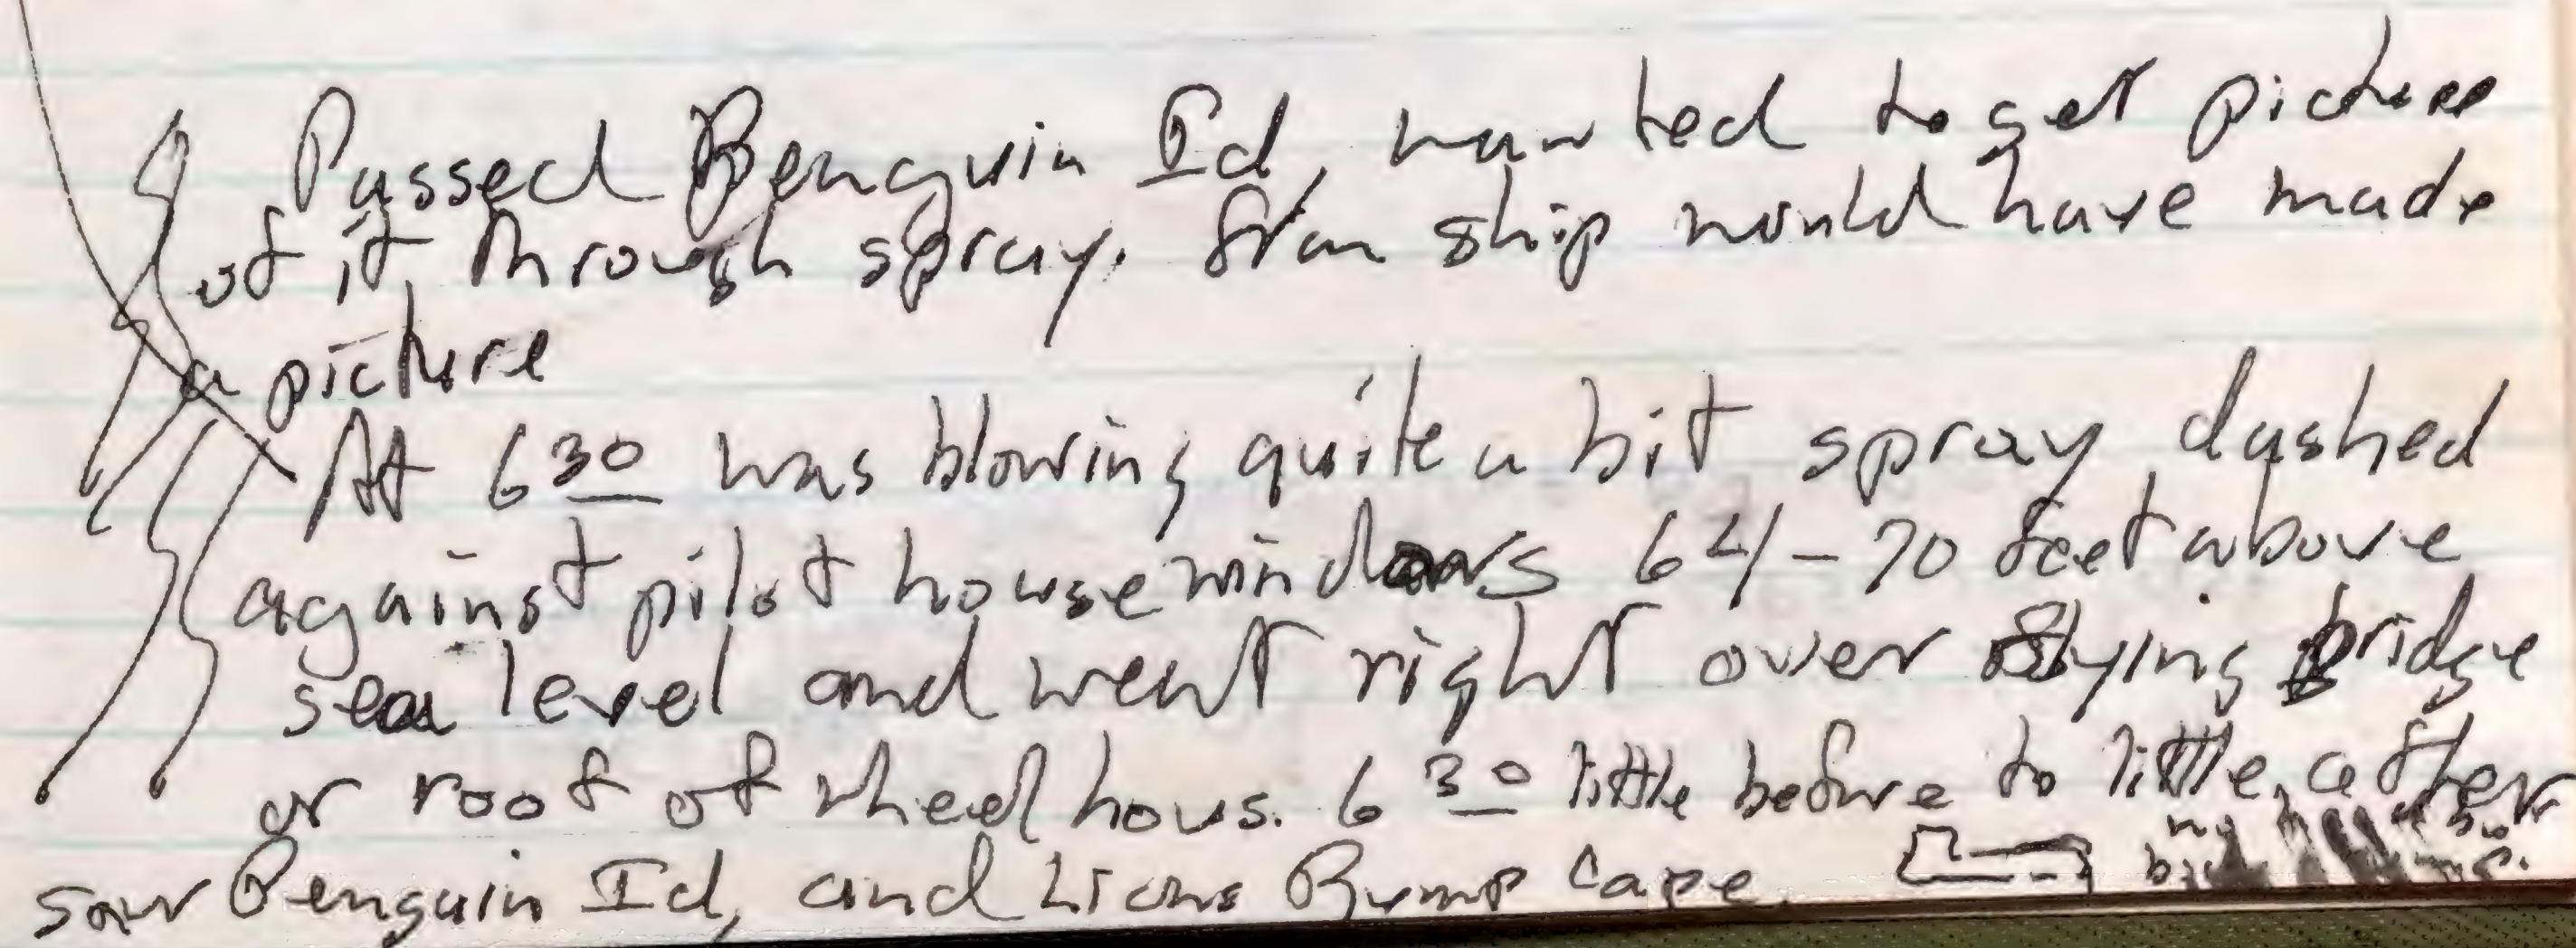 Passed Penguin Id, wanted to get picture
of it through spray. from ship would have made
a picture
At 6 30 was blowing quite a bit spray dashed
against pilot house windows 64-70 feet above
sea level and went right over flying bridge
or roof of wheel hous. 6 30 little before to little after
saw Penguin Id, and Lions Rump cape.